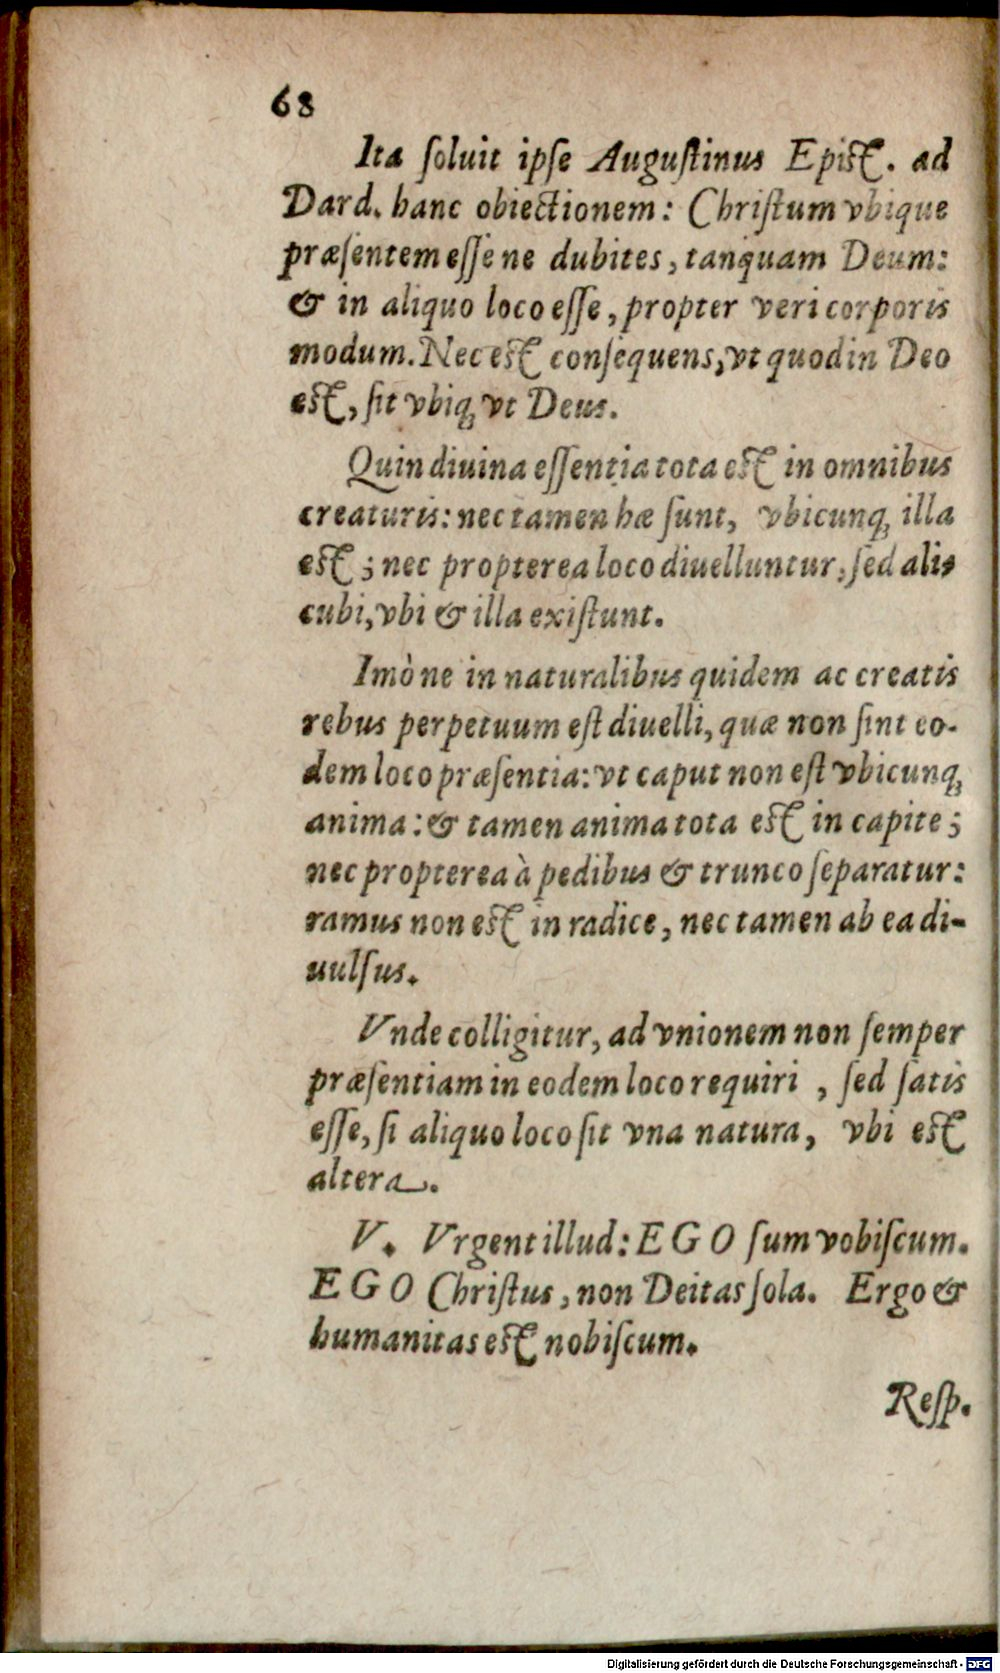 68
Ita ſoluit ipſe Auguſtinus Epiſt. ad
Dard. hanc obiectionem: Chriſtum vbique
præſentem eſſe ne dubites, tanquam Deum:
& in aliquo loco eſſe, propter veri corporis
modum. Nec eſt conſequens, vt quod in Deo
eſt, ſit vbiq; vt Deus.
Quin diuina eſſentia tota eſt in omnibus
creaturis: nec tamen hæ ſunt, vbicunq; illa
eſt; nec propterea loco diuelluntur, ſed ali-
cubi, vbi & illa exiſtunt.
Imò ne in naturalibus quidem ac creatis
rebus perpetuum eſt diuelli, quæ non ſint eo-
dem loco præſentia: vt caput non eſt vbicunq;
anima: & tamen anima tota eſt in capite;
nec propterea à pedibus & trunco ſeparatur:
ramus non eſt in radice, nec tamen ab ea di-
uulſus.
Vnde colligitur, ad vnionem non ſemper
præſentiam in eodem loco requiri, ſed ſatis
eſſe, ſi aliquo loco ſit vna natura, vbi eſt
altera.
V. Vrgent illud: EGO ſum vobiſcum.
EGO Chriſtus, non Deitas ſola. Ergo &
humanitas eſt nobiſcum.
Reſp.
Digitalisierung gefördert durch die Deutsche Forschungsgemeinschaft - DFG